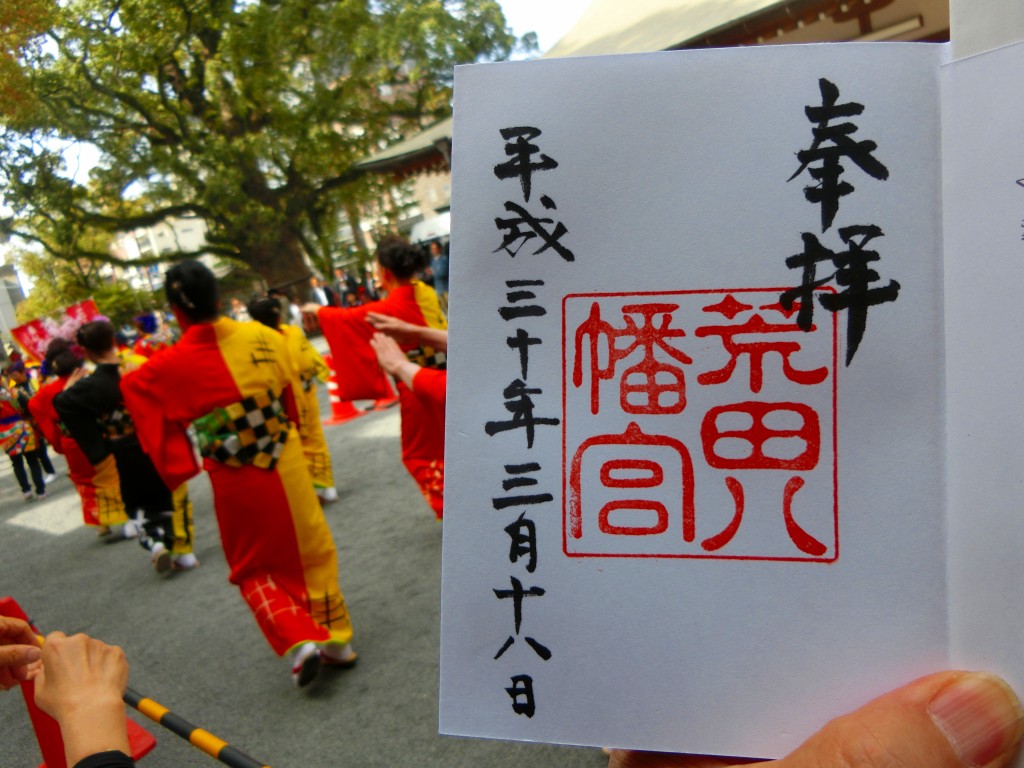 奉拝
荒田八
幡宮
平成三十年三月十八日